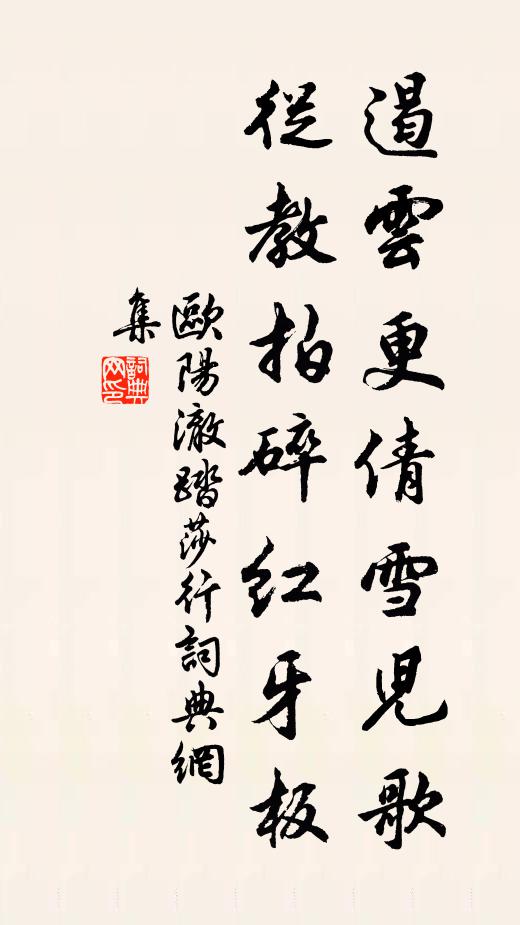 遏雲更倩雪児歌
從教拍碎紅牙板
歐陽澈踏莎行詞典網
集
詞典網印